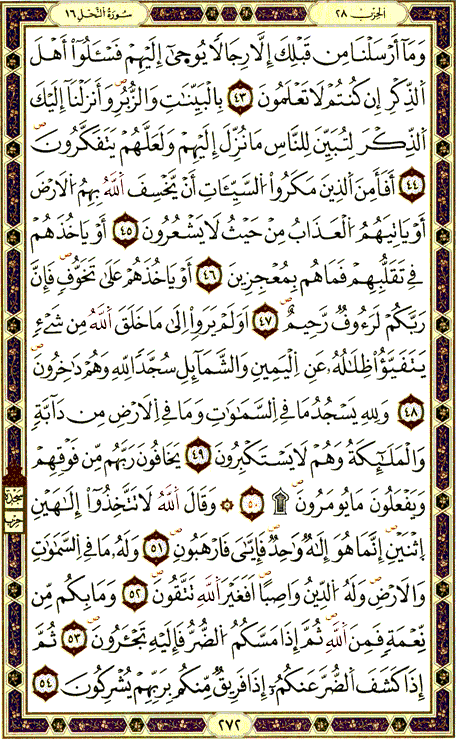 سُورَةُ النَّحْل ١٦
الحِزْب ٢٨
وَمَا أَرْسَلْنَا مِن قَبْلِكَ إِلَّا رِجَالًا يُوحَىٰ إِلَيْهِمْ فَسْـَٔلُوٓا۟ أَهْلَ
اَلذِّكْرِ إِن كُنتُمْ لَا تَعْلَمُونَ ٤٣ بِالْبَيِّنَٰتِ وَالزُّبُرِ وَأَنزَلْنَا إِلَيْكَ
اَلذِّكْرَ لِتُبَيِّنَ لِلنَّاسِ مَا نُزِّلَ إِلَيْهِمْ وَلَعَلَّهُمْ يَتَفَكَّرُونَ
٤٤ أَفَأَمِنَ اَلذِينَ مَكَرُوا۟ السَّيِّـَٔاتِ أَنْ يَّخْسِفَ اَللَّهُ بِهِمُ اُلَارْضَ
أَوْ يَاتِيَهُمُ اُلْعَذَابُ مِنْ حَيْثُ لَا يَشْعُرُونَ ٤٥ أَوْ يَاخُذَهُمْ
فِي تَقَلُّبِهِمْ فَمَا هُم بِمُعْجِزِينَ ٤٦ أَوْ يَاخُذَهُمْ عَلَىٰ تَخَوُّفٍ فَإِنَّ
رَبَّكُمْ لَرَءُوفٌ رَّحِيمٌ ٤٧ اَوَلَمْ يَرَوِا۟ اِلَىٰ مَا خَلَقَ اَللَّهُ مِن شَےْءٍ
يَتَفَيَّؤُا۟ ظِلَٰلُهُۥ عَنِ اِلْيَمِينِ وَالشَّمَآئِلِ سُجَّدًا لِلهِ وَهُمْ دَٰخِرُونَ
٤٨ وَلِلهِ يَسْجُدُ مَا فِي اِلسَّمَٰوَٰتِ وَمَا فِي اِلَارْضِ مِن دَآبَّةٍ
وَالْمَلَٰٓئِكَةُ وَهُمْ لَا يَسْتَكْبِرُونَ ٤٩ يَخَافُونَ رَبَّهُم مِّن فَوْقِهِمْ
وَيَفْعَلُونَ مَا يُومَرُونَ ۩ ٥٠ ۞ وَقَالَ اَللَّهُ لَا تَتَّخِذُوٓا۟ إِلَٰهَيْنِ
اِثْنَيْنِ إِنَّمَا هُوَ إِلَٰهٌ وَٰحِدٌ فَإِيَّٰيَ فَارْهَبُونِ ٥١ وَلَهُۥ مَا فِي اِلسَّمَٰوَٰتِ
وَالَارْضِ وَلَهُ اُلدِّينُ وَاصِبًا اَفَغَيْرَ اَللَّهِ تَتَّقُونَ ٥٢ وَمَا بِكُم مِّن
نِّعْمَةٍ فَمِنَ اَللَّهِ ثُمَّ إِذَا مَسَّكُمُ اُلضُّرُّ فَإِلَيْهِ تَجْـَٔرُونَ ٥٣ ثُمَّ
إِذَا كَشَفَ اَلضُّرَّ عَنكُمُۥٓ إِذَا فَرِيقٌ مِّنكُم بِرَبِّهِمْ يُشْرِكُونَ ٥٤
سجدة
حزب
٢٧٢